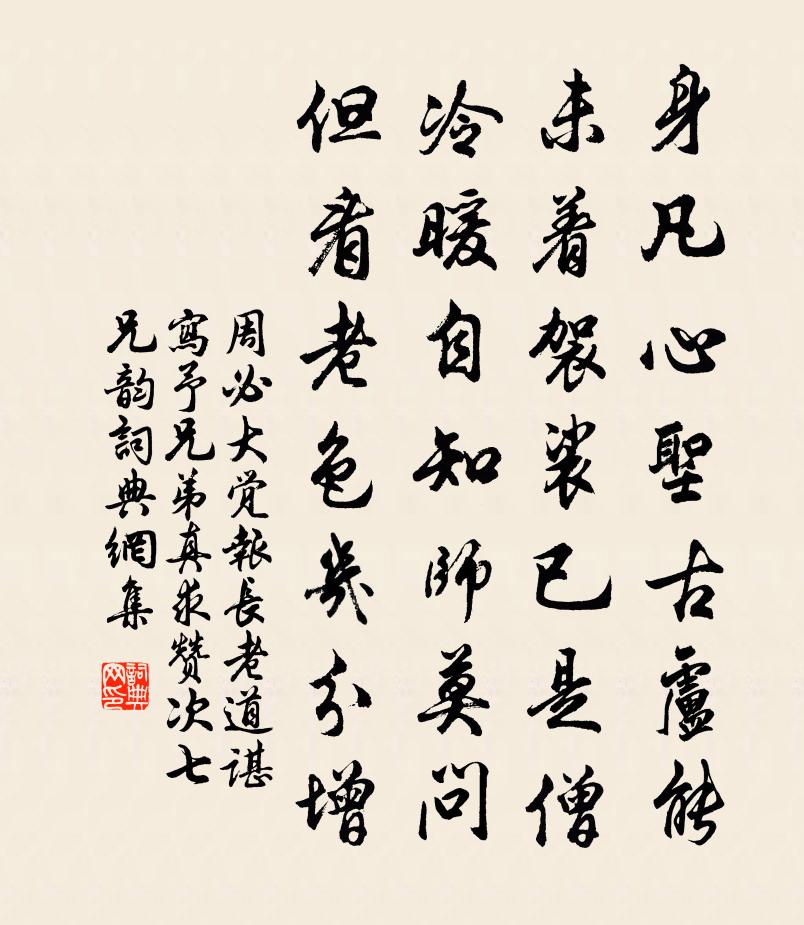 身凡心聖古盧能
未着袈裟已是僧
冷暖自知師莫問
但看老色幾分增
周必大覚報長老道諶
寫予兄弟真求赞次七
兄韵詞典網集
詞典
网印